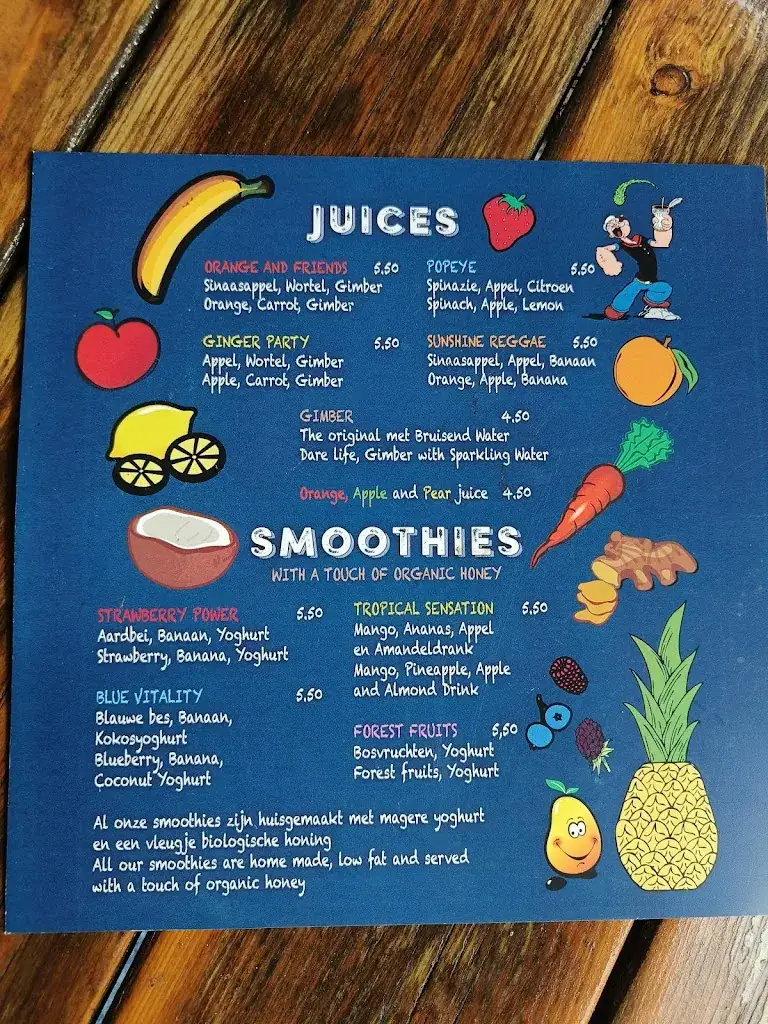 JUICES
ORANGE AND FRIENDS 5,50
Sinaasappel, Wortel, Gimber
Orange, Carrot, Gimber
POPEYE 5,50
Spinazie, Appel, Citroen
Spinach, Apple, Lemon
GINGER PARTY 5,50
Appel, Wortel, Gimber
Apple, Carrot, Gimber
SUNSHINE REGGAE 5,50
Sinaasappel, Appel, Banaan
Orange, Apple, Banana
GIMBER 4,50
The original met Bruisend Water
Dare life, Gimber with Sparkling Water
Orange, Apple and Pear juice 4,50
SMOOTHIES
WITH A TOUCH OF ORGANIC HONEY
STRAWBERRY POWER 5,50
Aardbei, Banaan, Yoghurt
Strawberry, Banana, Yoghurt
BLUE VITALITY 5,50
Blauwe bes, Banaan,
Kokosyoghurt
Blueberry, Banana,
Coconut Yoghurt
TROPICAL SENSATION 5,50
Mango, Ananas, Appel
en Amandeldrank
Mango, Pineapple, Apple
and Almond Drink
FOREST FRUITS 5,50
Bosvruchten, Yoghurt
Forest fruits, Yoghurt
Al onze smoothies zijn huisgemaakt met magere yoghurt
en een vleugje biologische honing
All our smoothies are home made, low fat and served
with a touch of organic honey